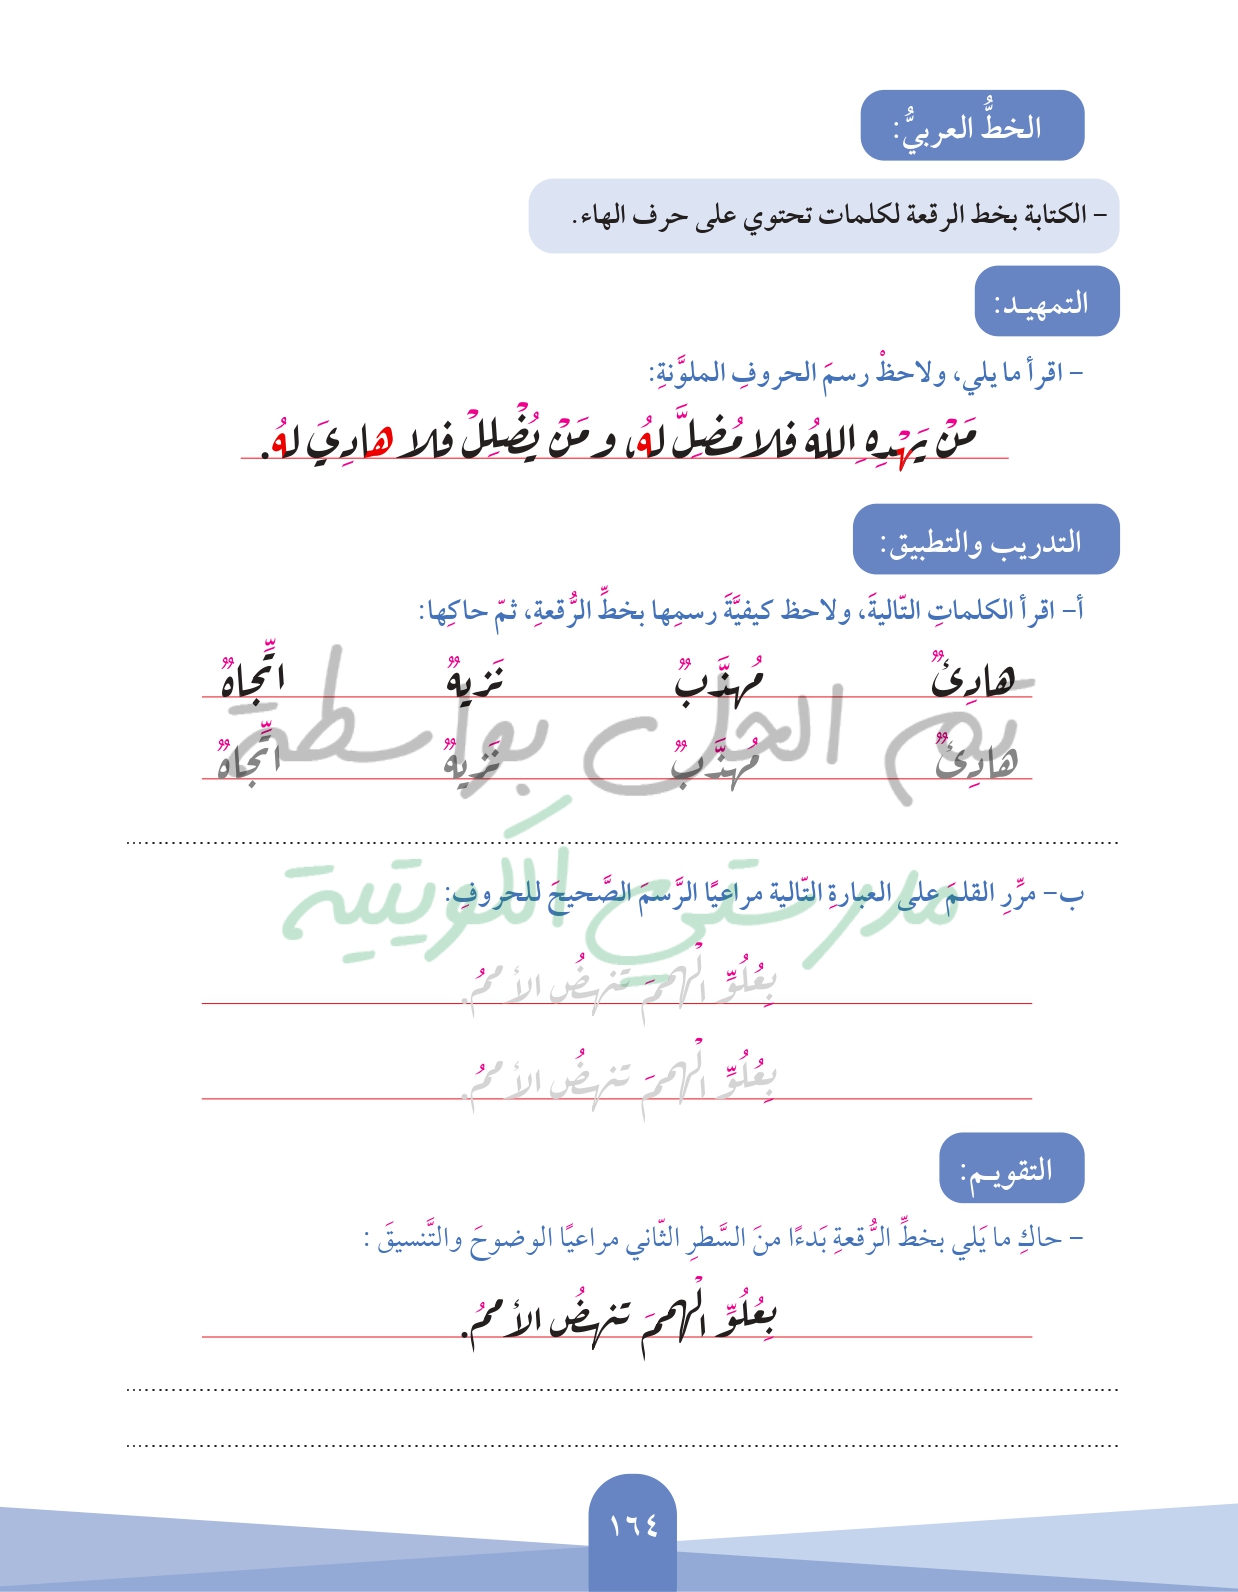 الخطُّ العربيُّ:
– الكتابة بخط الرقعة لكلمات تحتوي على حرف الهاء.
التمهيـد:
– اقرأ ما يلي، ولاحظْ رسمَ الحروفِ الملوَّنةِ:
مَنْ يَهْدِهِ اللهُ فلا مُضِلَّ لهُ، و مَنْ يُضْلِلْ فلا هادِيَ لهُ.
التدريب والتطبيق:
أ– اقرأ الكلماتِ التّاليةَ، ولاحظ كيفيَّةَ رسمِها بخطِّ الرُّقعةِ، ثمّ حاكِها:
هادِئٌ مُهذَّبٌ نَزيهٌ اتِّجاهٌ
هادِئٌ مُهذَّبٌ نَزيهٌ اتِّجاهٌ
تم الحل بواسطة
مدرستي الكويتية
ب– مرِّرِ القلمَ على العبارةِ التّالية مراعيًا الرَّسمَ الصَّحيحَ للحروفِ:
بِعُلُوِّ الْهممَ تنهضُ الأممُ.
بِعُلُوِّ الْهممَ تنهضُ الأممُ.
التقويـم:
– حاكِ ما يَلي بخطِّ الرُّقعةِ بَدءًا منَ السَّطرِ الثّاني مراعيًا الوضوحَ والتَّنسيقَ :
بِعُلُوِّ الْهممَ تنهضُ الأممُ.
١٦٤